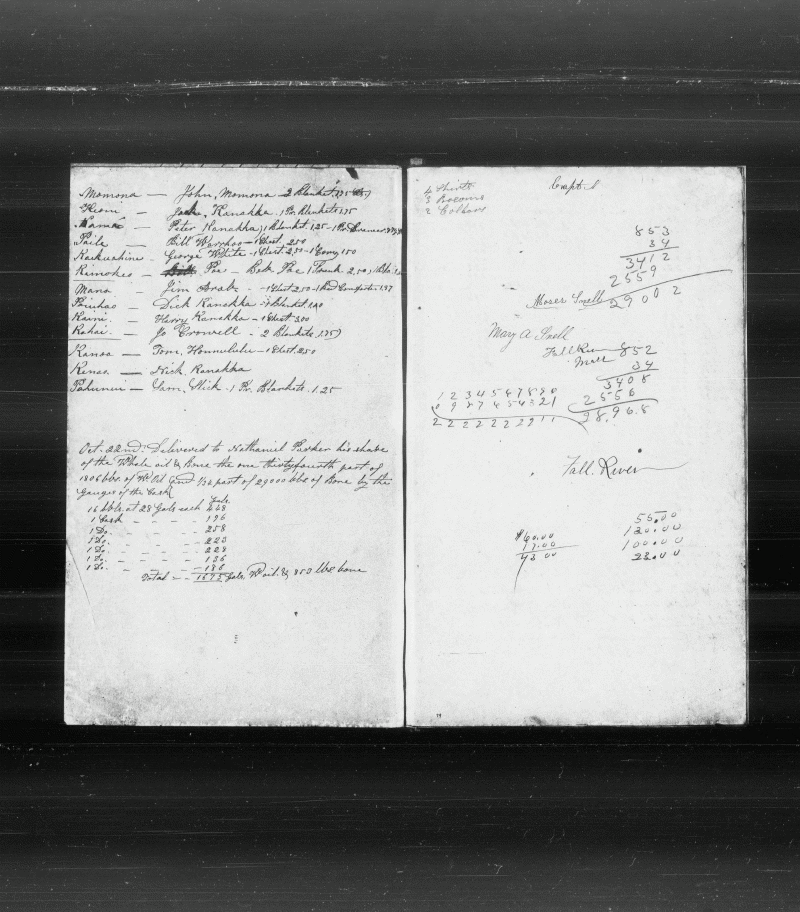 Momona — John, Momona - 2 Blankets 1.75
Keoni — Kanakka. 1 Pr. Blankets 1.75
Kamai — Peter Kanakka, 1 Blanket. 1.25 - 1 Pr.
Paile — Bill - 1 Chest. 2.50
George White - 1 Chest 2.50 - 1 150
Kaimokeo — Poe - Bob Poe 1 Trunk 2.50, 1
Mana — Jim Arab - 1 Chest 2.50 - 1 Comforter 1.37
Dick Kanakka - 1 Blanket 1.40
Kaini — Harry Kanakka - 1 Chest 3.00
Kahai — Jo Crowell - 2 Blankets. 1.75
Kanoa — Tom, Honnolulu - 1 Chest. 2.50
Kenao — Nick. Kanakka
Pahunui — Sam, Slick. 1 Pr. Blankets. 1.25
Oct. 22nd. Delivered to Nathaniel Parker his share
of the Whale oil & Bone the one thirtyfourth part of
1806 bbs. of W. Oil and 1/34 part of 29000 lbs of Bone by the
Gauges of the Cask
Gals.
16 bbls at 28 Gals each 448
1 Cask - - - - 196
1 Do. - - - - 258
1 Do. - - - - 223
1 Do. - - - - 228
1 Do. - - - - 136
1 Do. - - - - 186
Total = 1675 gals, W oil. & 853 lbs bone
4 Shirts
3 Bosoms
2 Collars
Capt.
853
34
3412
2559
29002
Moses Snell
Mary A. Snell
Fall River
Mass
852
34
3408
2556
28,968
1 2 3 4 5 6 7 8 9 0
0 9 8 7 6 5 4 3 2 1
2 2 2 2 2 2 2 9 1 1
Fall. River
$60.00
17.00
43 00
55.00
120.00
100.00
23.00